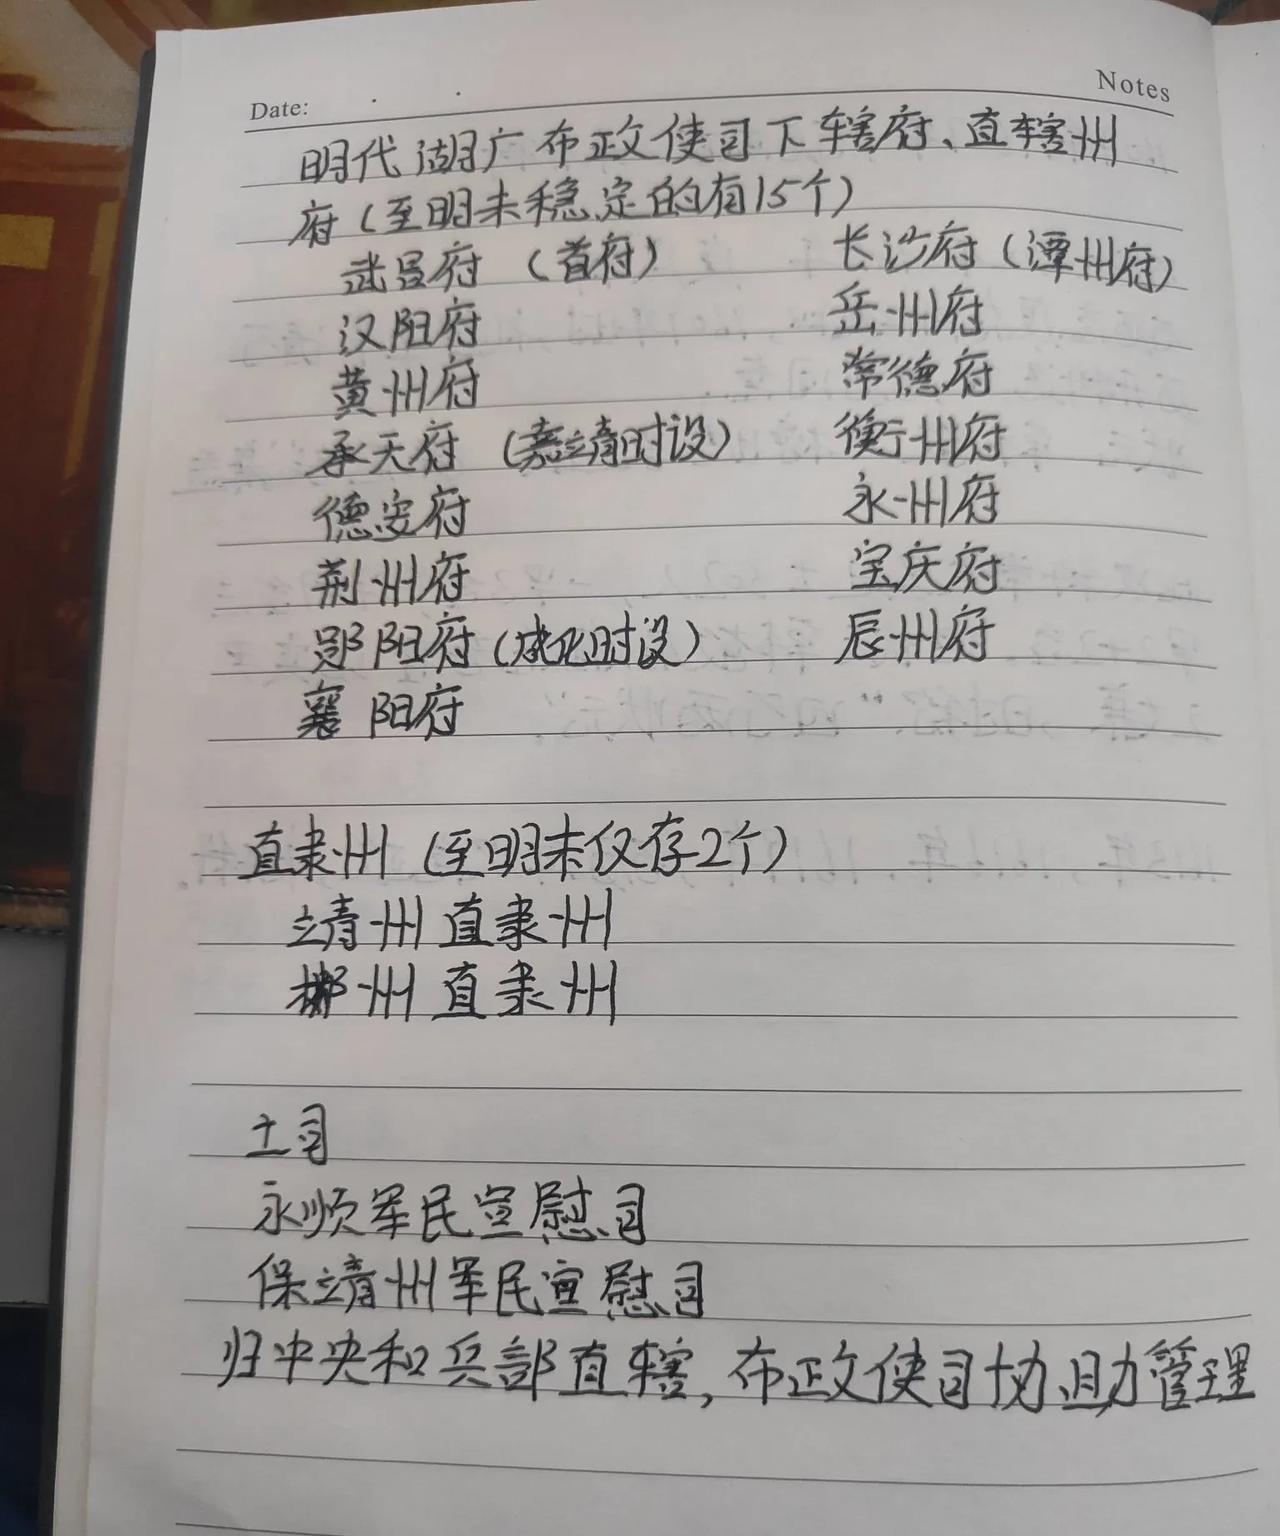 Date:
Notes
明代湖广布政使司下辖府、直辖州
府（至明末稳定的有15个）
武昌府（首府） 长沙府（潭州府）
汉阳府 岳州府
黄州府 常德府
承天府（嘉靖时设） 衡州府
德安府 永州府
荆州府 宝庆府
郧阳府（成化时设） 辰州府
襄阳府
直隶州（至明末仅存2个）
靖州直隶州
郴州直隶州
土司
永顺军民宣慰司
保靖州军民宣慰司
归中央和兵部直辖，布政使司协助管理